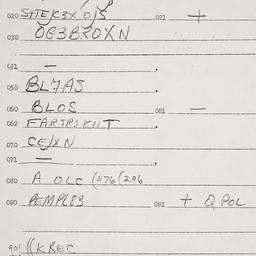 020 SITEJC3X 0J5 021 +
030 OG3BROXN
031 —
050 BL7AS
060 BLOS 061 —
062 FARTRSKIIT
070 CEJXN
071 —
080 A OLC (076(296
090 PEMPL83 091 + Q POL
901 ((KREC